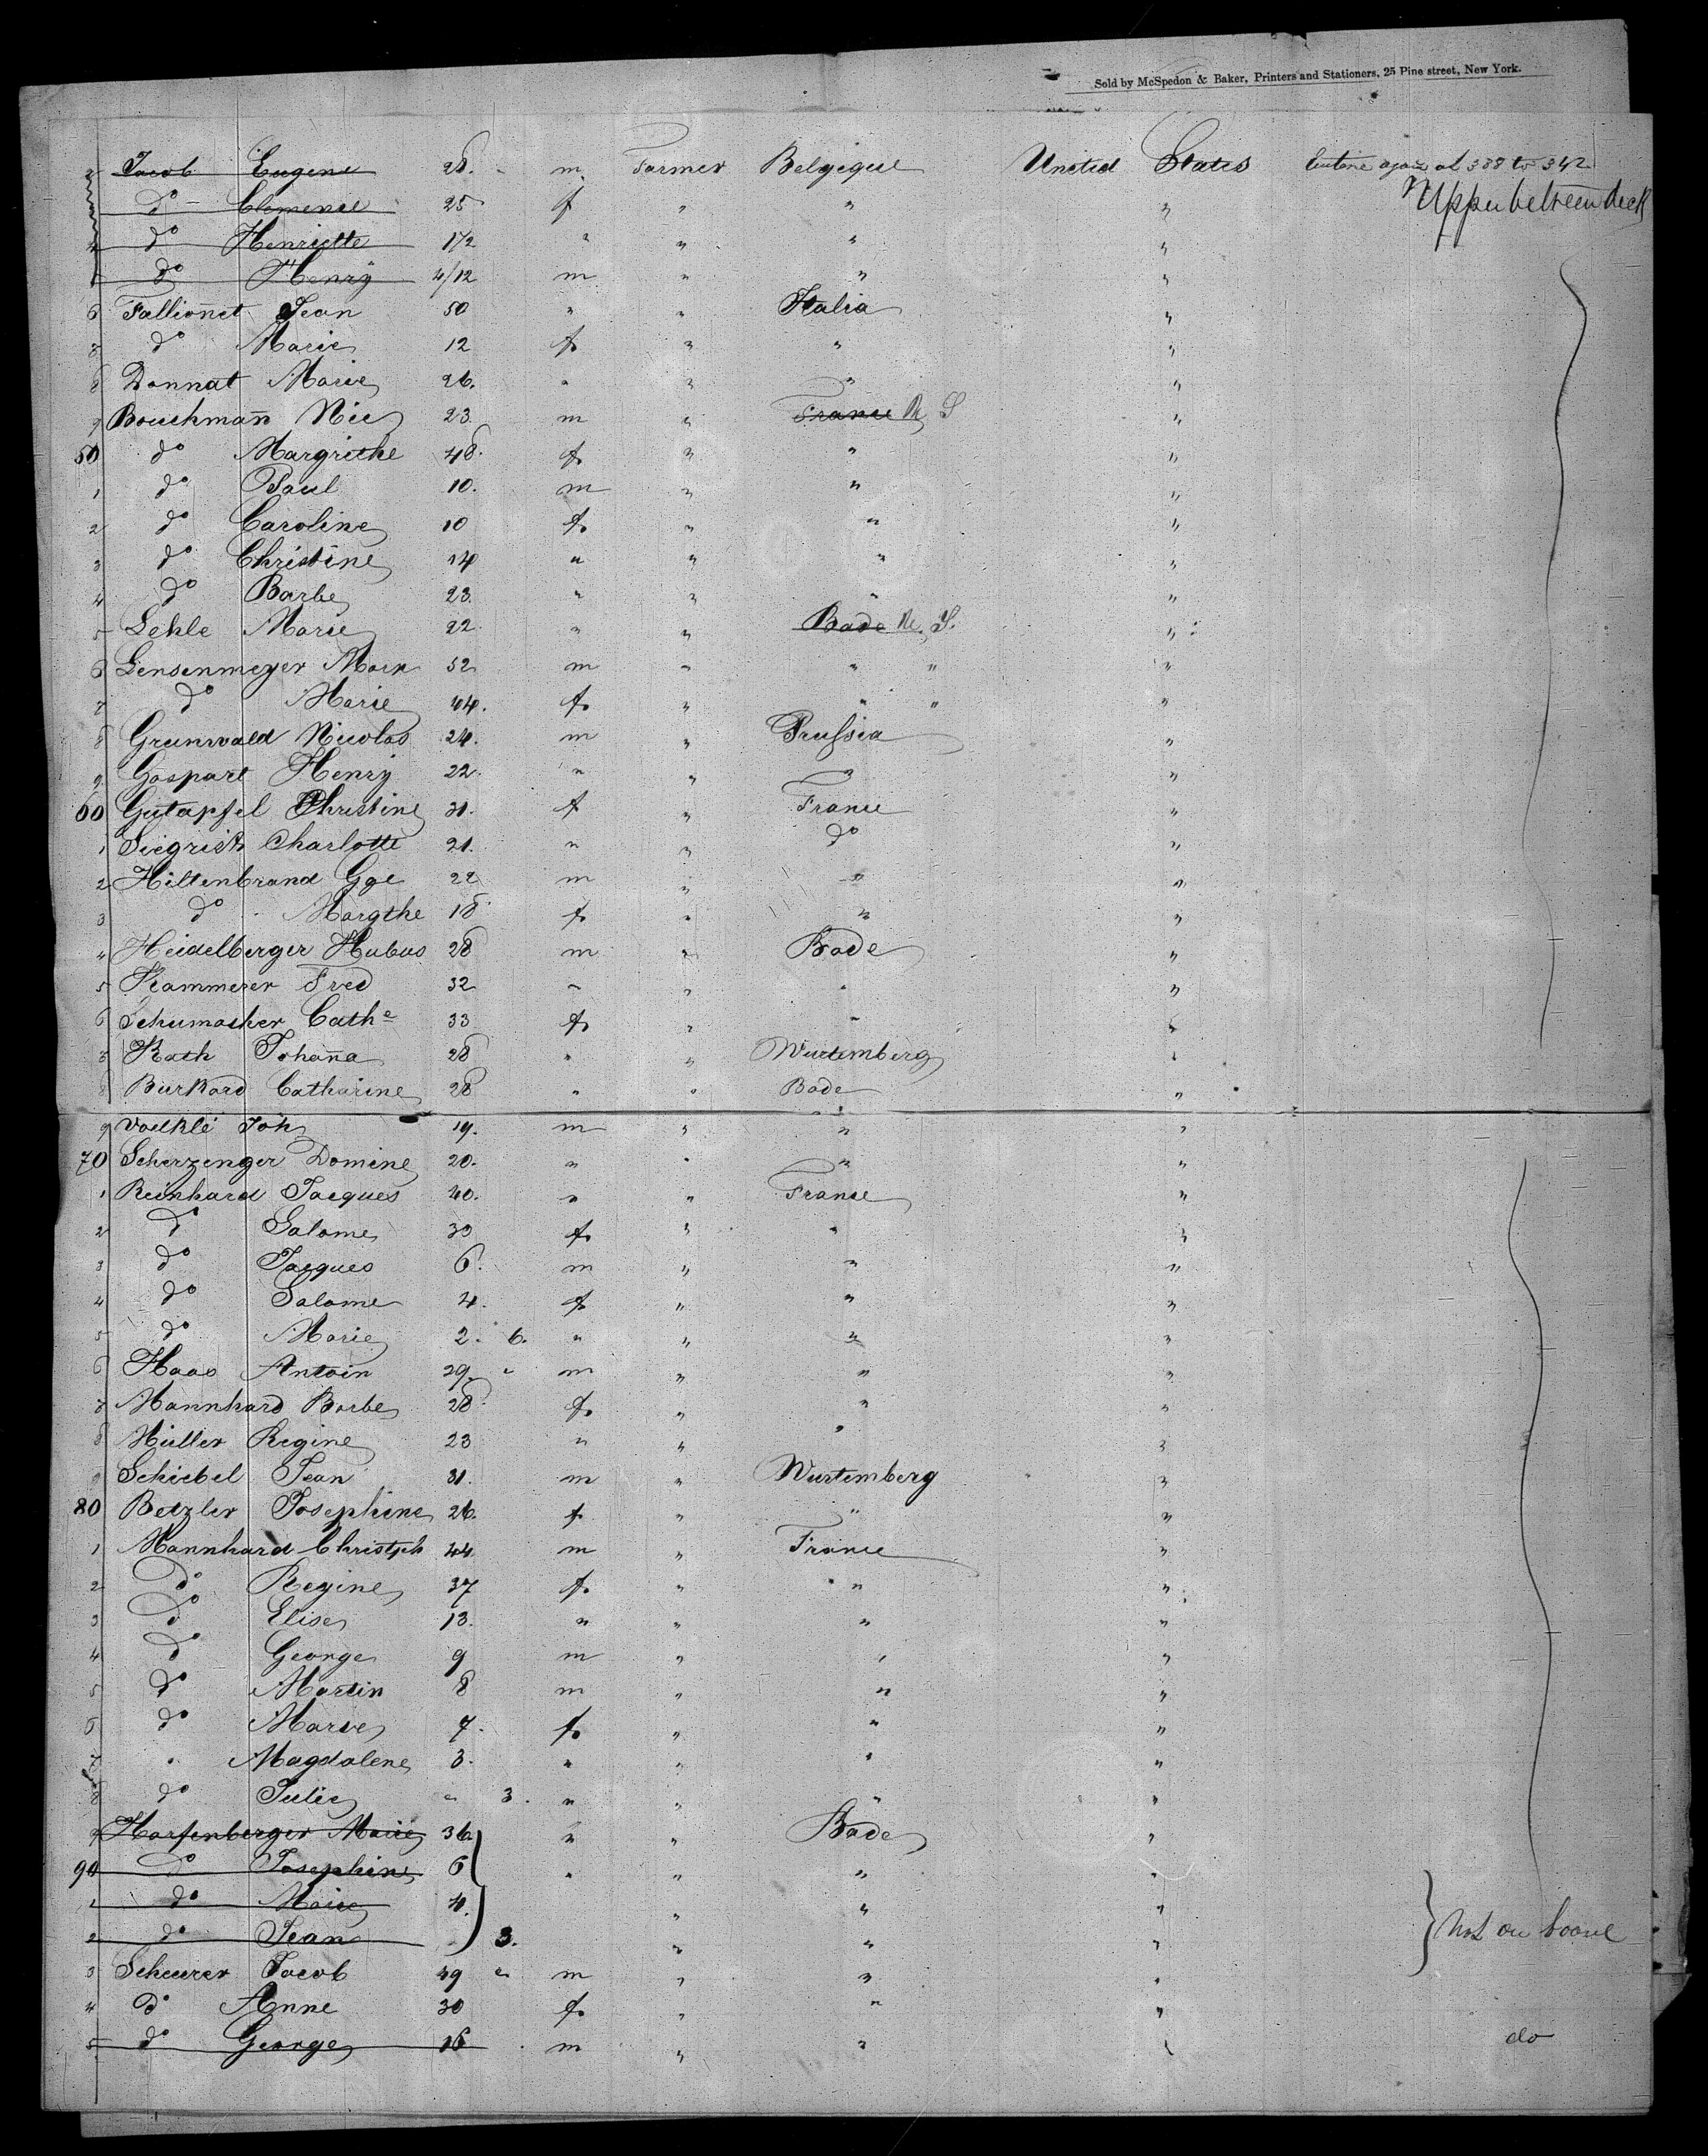 Sold by McSpedon & Baker, Printers and Stationers, 25 Pine street, New York.
2 Jacob Eugene 28. m. Farmer Belgique United States again at 338 to 342
3 do Clemence 25 f " " " Upper between deck
4 do Henriette 1/2 " " " "
5 do Henry 4/12 m " " "
6 Fallionet Jean 50 " " Italia "
7 do Marie 12 f " " "
8 Donnat Marie 26. " " " "
9 Bouchmañ Nic 23. m " France N S "
50 do Margrithe 48. f " " "
1 do Paul 10. m " " "
2 do Caroline 10 f. " " "
3 do Christine 14 " " " "
4 do Barbe 23. " " " "
5 Lehle Marie 22 " " Bade N. S. "
6 Lensenmeyer Mark 52 m " " " "
7 do Marie 44. f. " " " "
8 Grunwald Nicolas 24. m " Prussia "
9 Gaspart Henry 22. " " " "
60 Gutapfel Christine 31. f " France "
1 Siegrist Charlotte 21. " " do "
2 Hiltenbrand Gge 22 m " " "
3 do Margthe 18 f. " " "
4 Heidelberger Hubas 28 m " Bade "
5 Kammerer Fred 32 " " " "
6 Schumacher Cathe 33 f. " " "
7 Rath Johaña 28 " " Wurtemberg "
8 Burkard Catharine 28 " " Bade "
9 Voelklé Joh 19. m " " "
70 Scherzenger Domine 20. " " " "
1 Reinhard Jacques 40. " " France "
2 do Salome 30 f. " " "
3 do Jacques 6. m " " "
4 do Salome 4. f " " "
5 do Marie 2. 6. " " " "
6 Haas Antoin 29. " m " " "
7 Mannhard Barbe 28 f. " " "
8 Müller Regine 23 " " " "
9 Schiebel Jean 31. m " Wurtemberg "
80 Betzler Josephine 26. f. " " "
1 Mannhard Christph 44 m " France "
2 do Regine 37 f. " " "
3 do Elise 13. " " " "
4 do George 9 m " " "
5 do Martin 8 m " " "
6 do Marie 7. f. " " "
7 " Magdalene 3. " " " "
8 do Julie " 3. " " " "
9 Harfenberger Marie 36 " " Bade "
90 do Josephine 6 " " " "
1 do Marie 4. " " "
2 do Jean 3. " " " Not on board
3 Scheurer Jacob 49 " m " " "
4 do Anne 30 f. " " "
5 do George 16 m " " " do